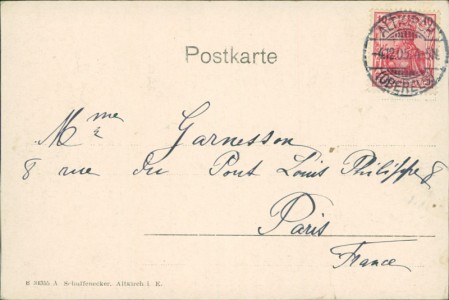 Postkarte
ALTKIRCH
(OBERELS)
Mme Garnesson
8 rue du Pont Louis Philippe 8
Paris
France
A. Schuffenecker, Altkirch i. E.